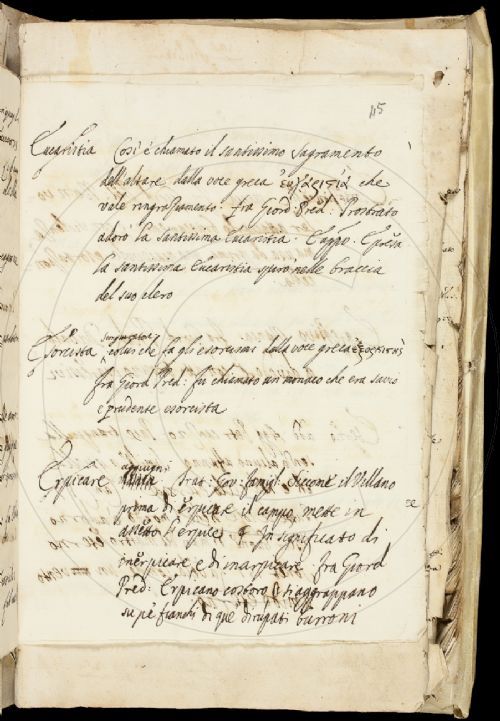 115
Eucaristia Così è chiamato il santissimo Sagramento
dell'altare dalla voce greca ευχαριστία che
vale ringraziamento. fra Giord: Pred: Prostrato
adorò la santissima Eucaristia. E appr: Presa
la santissima Eucaristia spirò nelle braccia
del suo clero
Esorcista colui che fa gli esorcismi dalla voce greca
fra Giord Pred: fu chiamato un monaco che era savio
e prudente esorcista
Erpicare Trat: Gov: famigl: Siccome il Villano
prima di erpicare il campo, mette in
assetto l'erpice. In significato di
inerpicare e di inarpicare. fra Giord
Pred: Erpicano costoro e s'aggrappano
su pe' fianchi di que' dirupati burroni